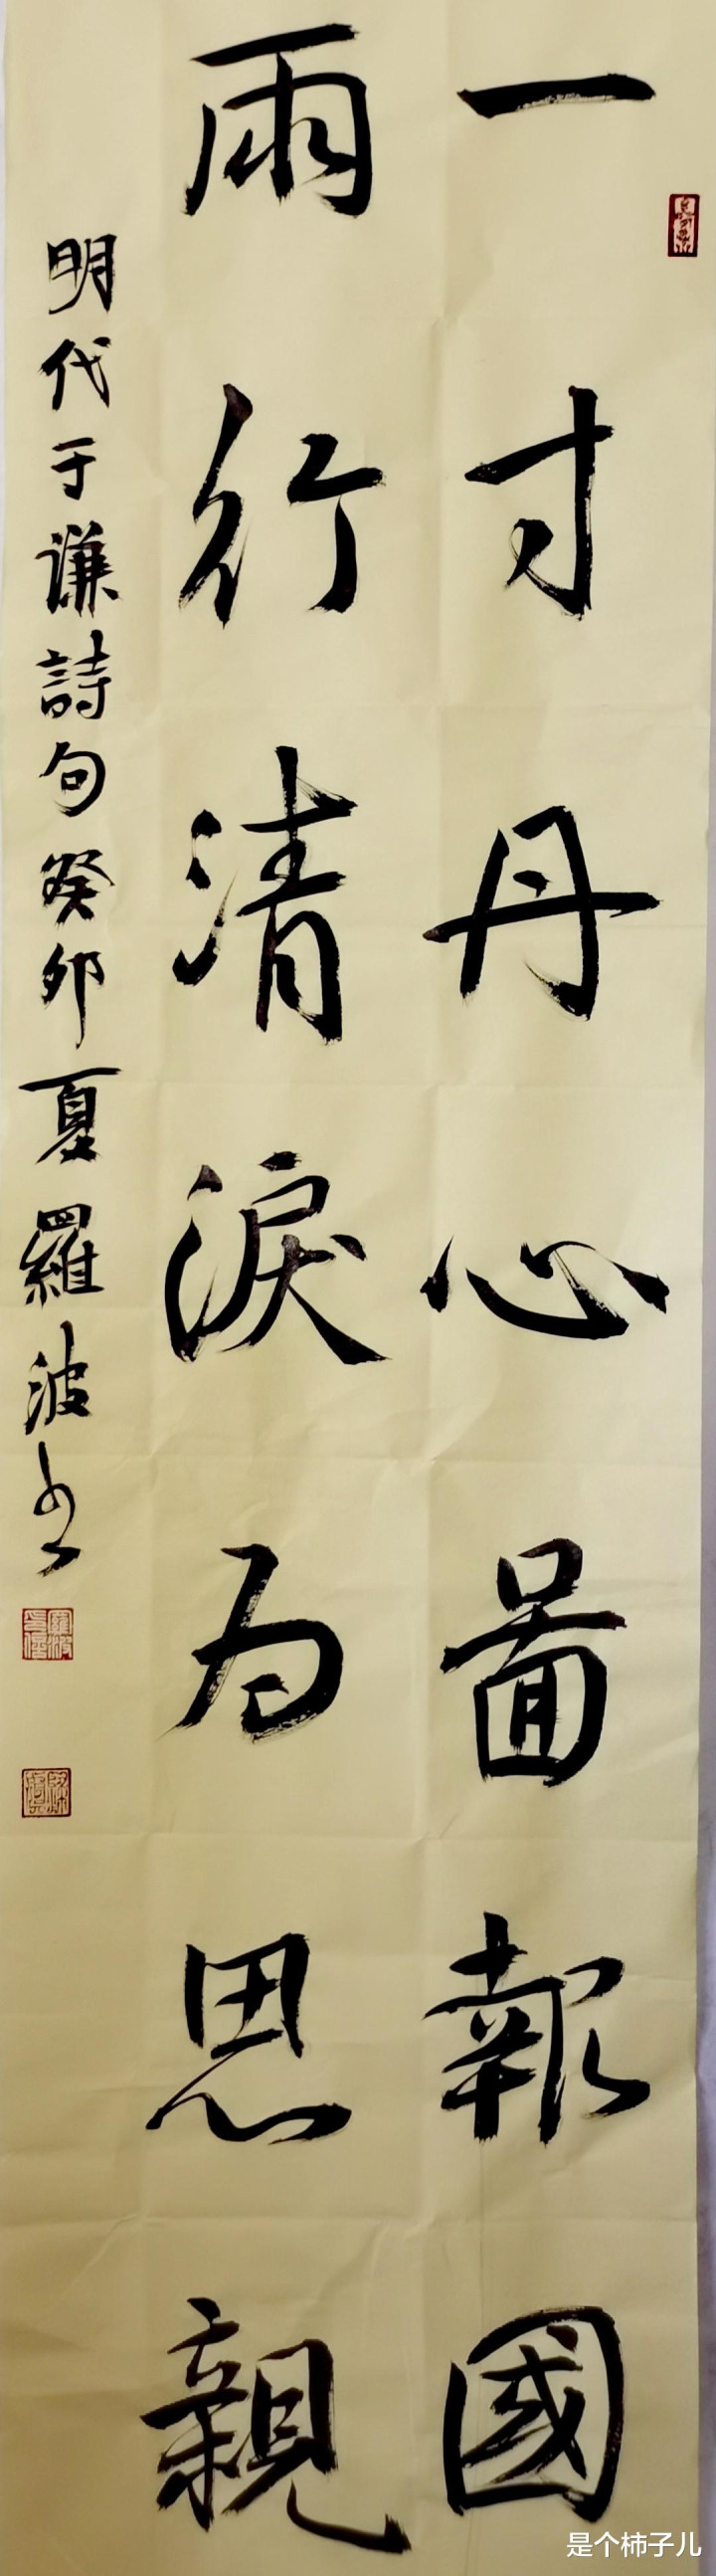 一寸丹心啚報國
雨行清淚为思親
明代于謙詩句癸卯夏羅波书
是个柿子儿